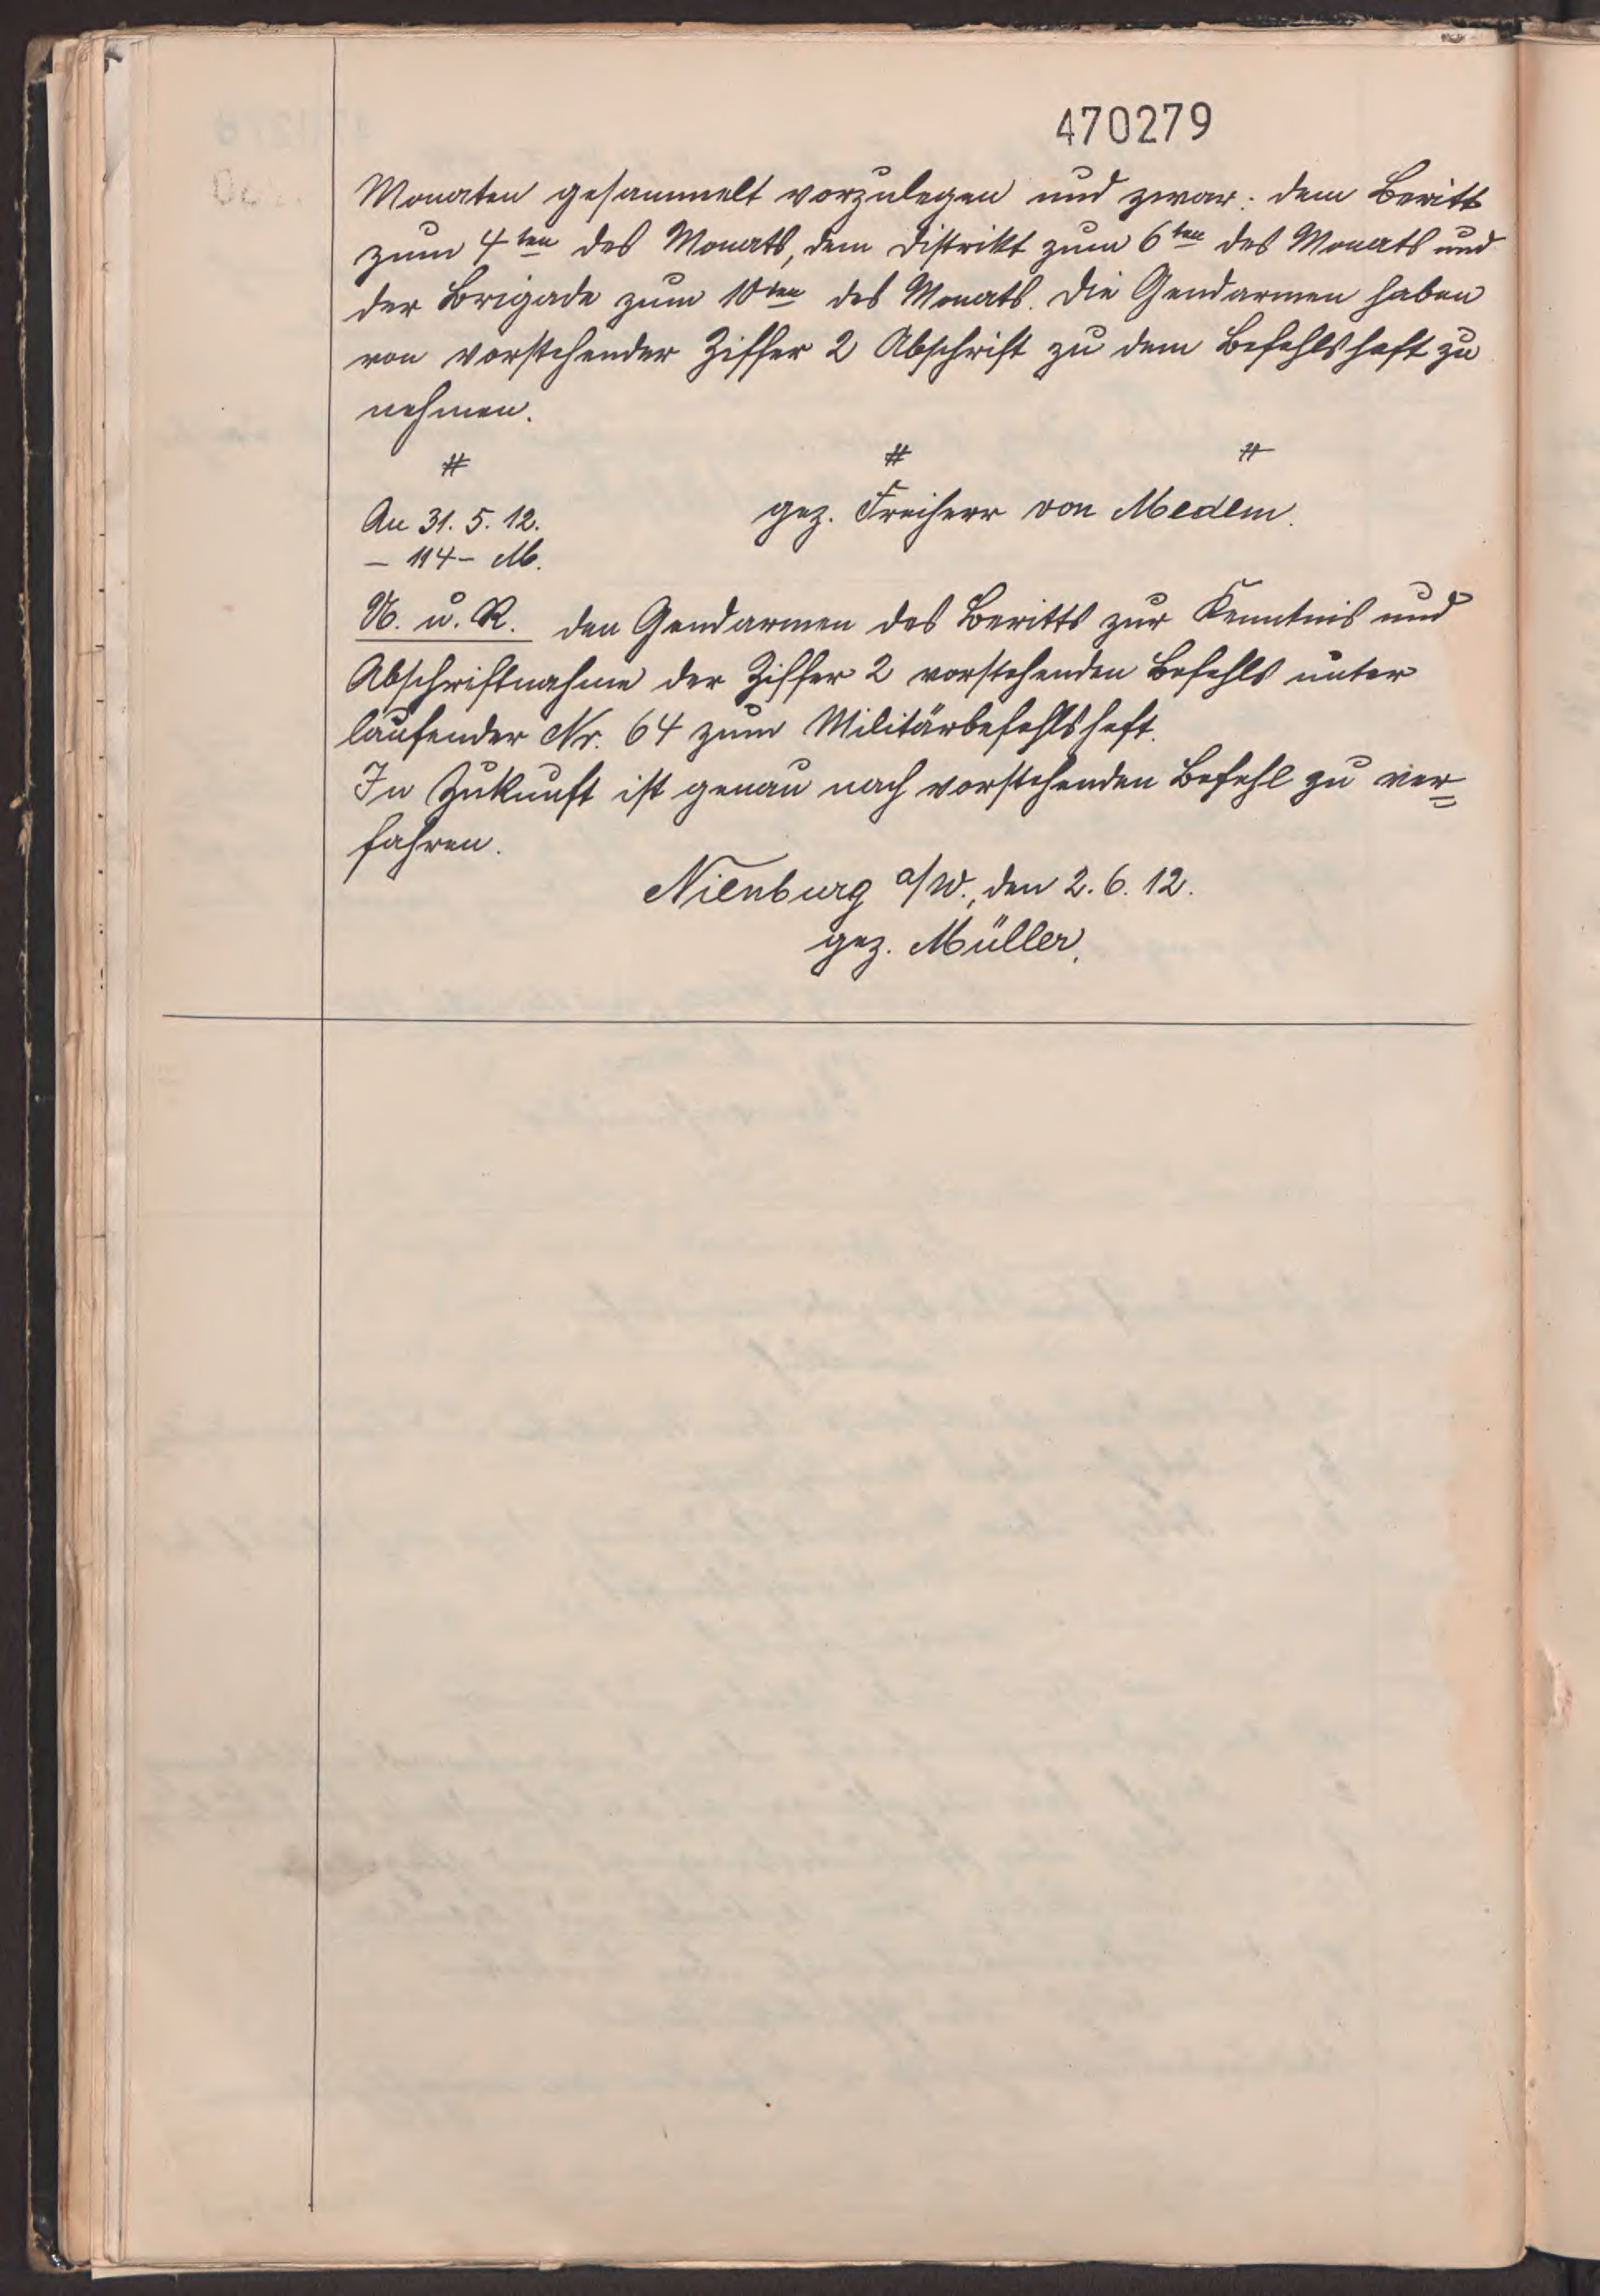 470279
Monaten gesammelt vorzulegen und zwar: dem Beritt
zum 4ten des Monats, dem Distrikt zum 6ten des Monats und
der Brigade zum 10ten des Monats. Die Gendarmen haben
von vorstehender Ziffer 2 Abschrift zu dem Befehlsheft zu
nehmen.
# # #
gez. Freiherr von Medem.
An 31. 5. 12.
– 114 – M.
U. u. R. den Gendarmen des Beritts zur Kenntnis und
Abschriftnahme der Ziffer 2 vorstehenden Befehls unter
laufender Nr. 64 zum Militärbefehlsheft.
In Zukunft ist genau nach vorstehenden Befehl zu ver=
fahren.
Nienburg a/W., den 2. 6. 12.
gez. Müller.